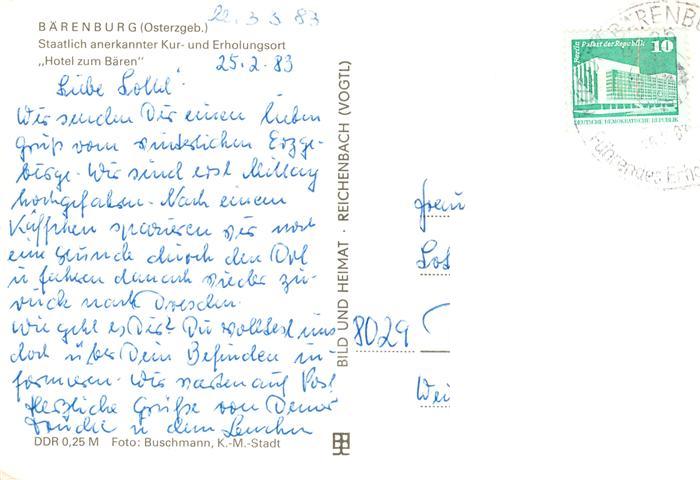 22. 3 3 83
BÄRENBURG (Osterzgeb.)
Staatlich anerkannter Kur- und Erholungsort
„Hotel zum Bären"
25.2.83
Liebe Lottel!
Wir senden Dir einen lieben
Gruß vom winterlichen Erzge-
birge. Wir sind erst Mittag
hochgefahren. Nach einem
Käffchen spazieren wir noch
eine Stunde durch den Ort
u fahren danach wieder zu-
rück nach Dresden.
Wie geht es Dir? Du wolltest uns
doch über Dein Befinden in-
formieren. Wir warten auf Post
Herzliche Grüße von Deiner
u dem
DDR 0,25 M Foto: Buschmann, K.-M.-Stadt
BILD UND HEIMAT · REICHENBACH (VOGTL)
Berlin Palast der Republik 10
DEUTSCHE DEMOKRATISCHE REPUBLIK
BÄRENBU
Führendes Erho
Frau
Lot
8029
Wei